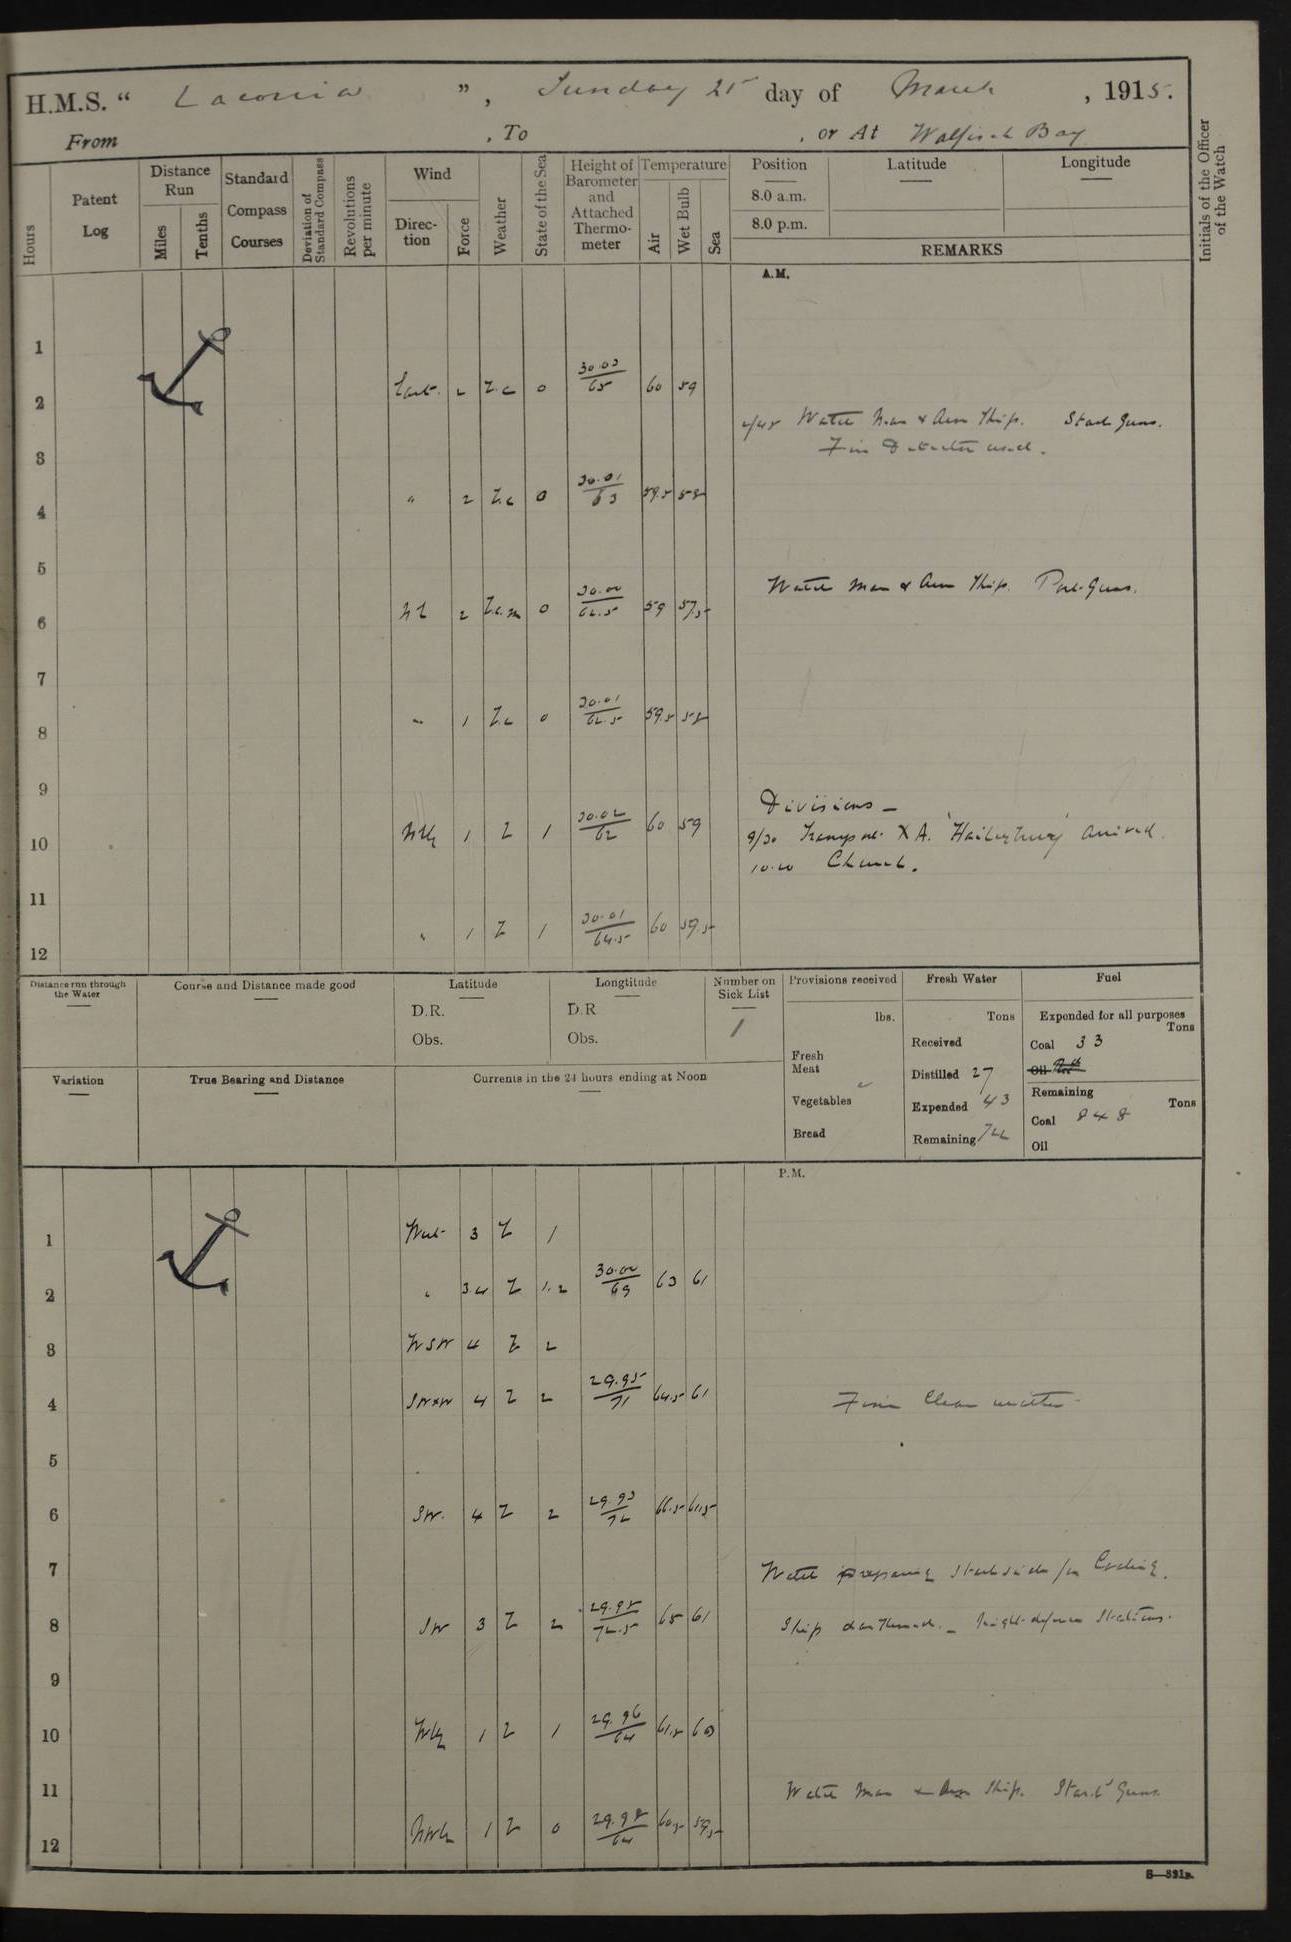 H.M.S. “ Laconia ”, Sunday 25 day of March , 1915.
From , To , or At Walfisch Bay
Hours
Patent Log
Distance Run
Miles
Tenths
Standard Compass Courses
Deviation of Standard Compass
Revolutions per minute
Wind
Direc-tion
Force
Weather
State of the Sea
Height of Barometer and Attached Thermo-meter
Temperature
Air
Wet Bulb
Sea
Position
8.0 a.m.
8.0 p.m.
Latitude
Longitude
REMARKS
Initials of the Officer of the Watch
A.M.
1
2 East. 2 Z.c 0 30.03/65 60 59
Watch Man & Arm Ship. Starb Guns.
Fire Detector used.
3
4 " 2 Z.c 0 30.01/63 59.5 58
5
Watch Man & Arm Ship. Port Guns.
6 NE 2 Z.c.m 0 30.00/62.5 59 57.5
7
8 " 1 Z.c 0 30.01/62.5 59.5 58
9
Divisions
10 Nly 1 Z 1 30.02/62 60 59
9/30 Transport XA. 'Haileybury' arrived.
10.40 Church.
11
12 " 1 Z 1 30.01/64.5 60 59.5
Distance run through the Water
Course and Distance made good
Latitude
D.R.
Obs.
Longtitude
D.R
Obs.
Number on Sick List
1
Provisions received
lbs.
Fresh Meat
Vegetables
Bread
Fresh Water
Tons
Received
Distilled 27
Expended 43
Remaining 722
Fuel
Expended for all purposes
Tons
Coal 33
Oil
Remaining
Tons
Coal 848
Oil
Variation
True Bearing and Distance
Currents in the 24 hours ending at Noon
P.M.
1 West 3 Z 1
2 " 3.4 Z 1.2 30.00/69 63 61
3 WSW 4 Z 2
4 SWxW 4 Z 2 29.95/71 64.5 61
Fine Clear weather
5
6 SW. 4 Z 2 29.93/72 66.5 61.5
7
Watch preparing Starb side for Coaling.
8 SW 3 Z 2 29.95/72.5 65 61
Ship darkened. Night defence Stations.
9
10 Wly 1 Z 1 29.96/64 61.5 60
11
Watch Man & Arm Ship. Starbd Guns.
12 NWly 1 Z 0 29.98/64 60.5 59.5
S—321B.